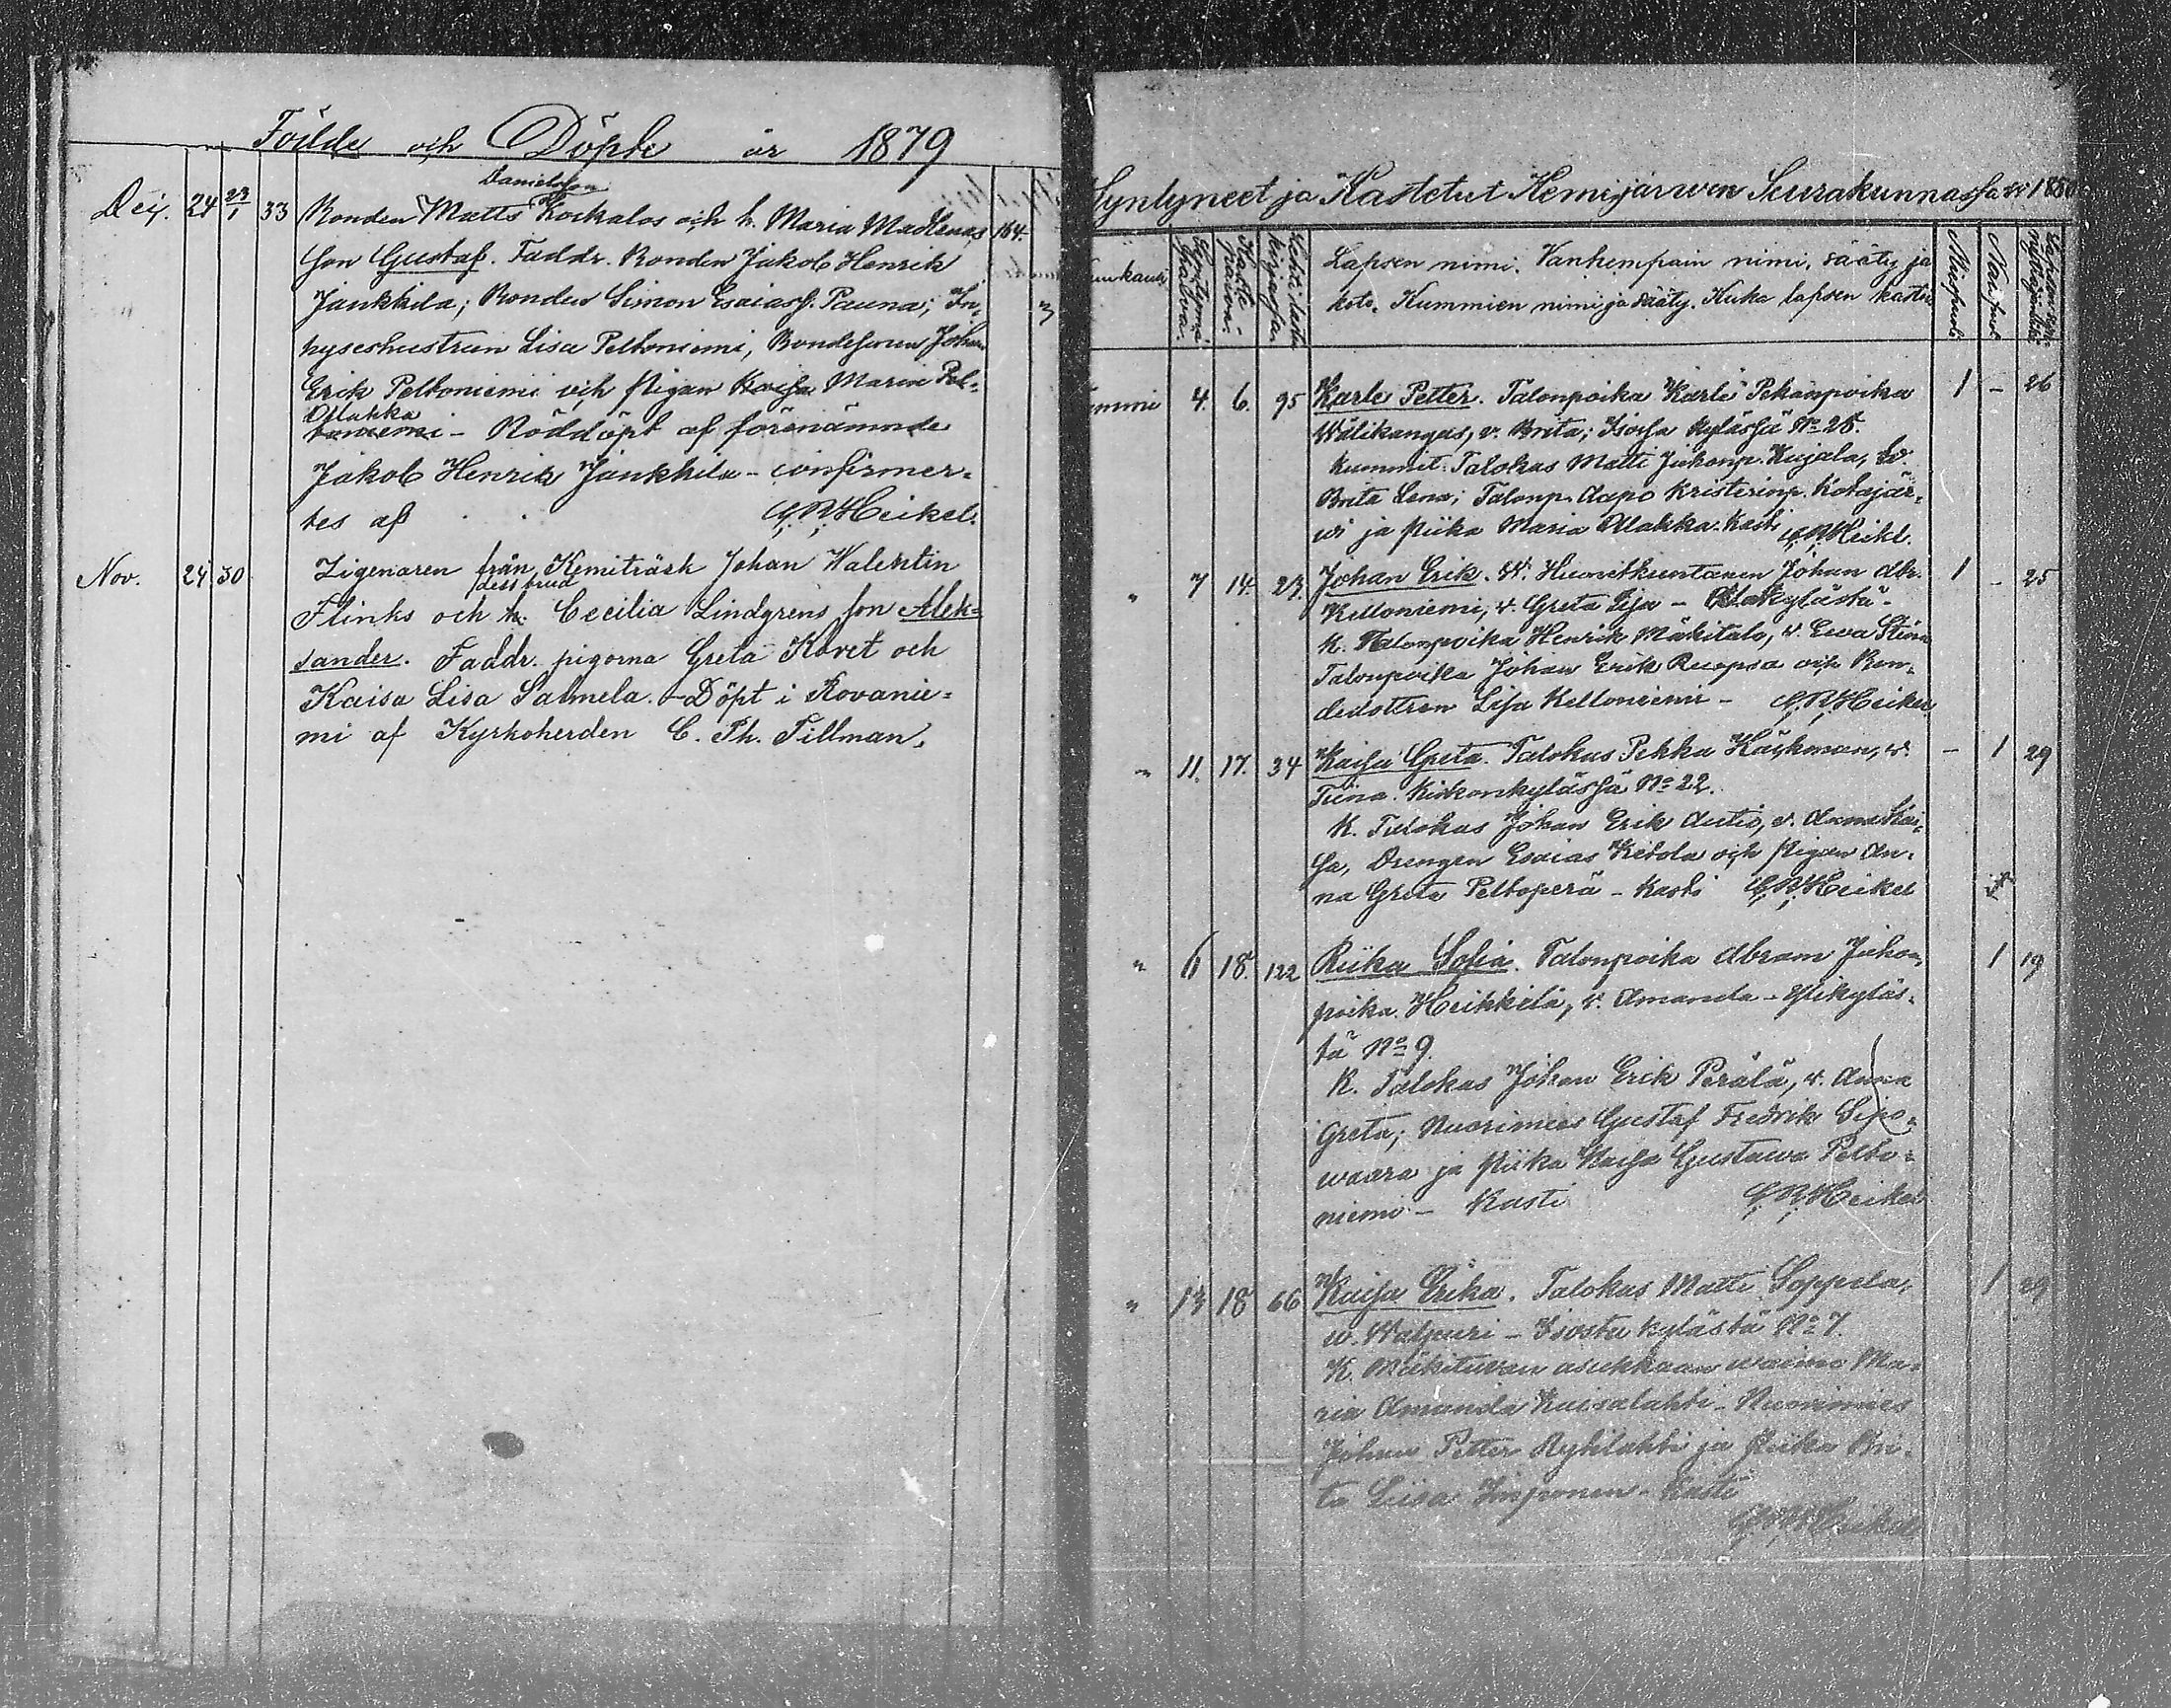 Födde och Döpte år 1879
Danielsson
Dec. 24 23/1 33 Bonden Matts Koskalos och h. Maria Madlenas 164.
son Gustaf. Faddr. Bonden Jakob Henrik
Jänkkilä; Bonden Simon Esaiass. Pauna; In-
hyseshustrun Lisa Peltoniemi, Bondesonen Johan
Erik Peltoniemi och pigan Kaisa Maria Pel-
Ollakka
toniemi - Nöddöpt af förenämnde
Jakob Henrik Jänkkilä - confirmer-
tes af Heikel.
Nov. 24 30 Zigenaren från Kemiträsk Johan Walentin
dess brud
Flinks och h. Cecilia Lindgrens son Alek-
sander. Faddr. pigorna Greta Kåvet och
Kaisa Lisa Salmela. - Döpt i Rovanie-
mi af Kyrkoherden C. Ph. Tillman.
Syntyneet ja Kastetut Kemijärwen Seurakunnassa v. 1880
Kuukausi
Syntymä päiwä.
Kaste päiwä.
Lapsen nimi. Vanhempain nimi, sääty ja
koto. Kummien nimi ja sääty. Kuka lapsen kasti.
Miespuol.
Naispuol.
4. 6. 95 Karle Petter. Talonpoika Karle Pekanpoika 1 - 26
Wälikangas, v. Brita; Isossa kylässä No 28.
Kummit: Talokas Matti Juhonp. Kujala, w.
Brita Lena; Talonp. Aapo Kristerinp. Kotajär-
wi ja piika Maria Ollakka. Kasti Heikel.
" 7 14. 23. Johan Erik. W. Huonekuntanen Johan Abr. 1 - 25
Kelloniemi, v. Greta Lisa - Alakylästä -
K. Talonpoika Henrik Mäkitalo, v. Ewa Stina
Talonpoika Johan Erik Ruopsa och Bon-
dedottren Lisa Kelloniemi - Heikel
" 11. 17. 34 Kaisa Greta. Talokas Pekka Käskonen, w. - 1 29
Tiina. Kirkonkylässä No 22.
K. Talokas Johan Erik Autio, v. Anna Kai-
sa, Drengen Esaias Ketola och pigan An-
na Greta Peltoperä - Kasti Heikel
" 11 18. 122 Riika Sofia. Talonpoika Abram Juhon- 1 19
poika Heikkilä, v. Amanda - Ylikyläs-
tä No 9.
K. Talokas Johan Erik Perälä, v. Anna
Greta; Nuorimies Gustaf Fredrik Sipo-
waara ja piika Kaisa Gustawa Pelto-
niemi - Kasti Heikel
" 13 18 66 Kaisa Erika. Talokas Matti Soppela, 1 29
w. Walpuri - Isosta kylästä No 7.
K. Mäkituwan asukkaan waimo Ma-
ria Amanda Kaisalahti - Nuorimies
Johan Petter Kytilahti ja piika Bri-
ta Liisa Impponen - Kasti
Heikel